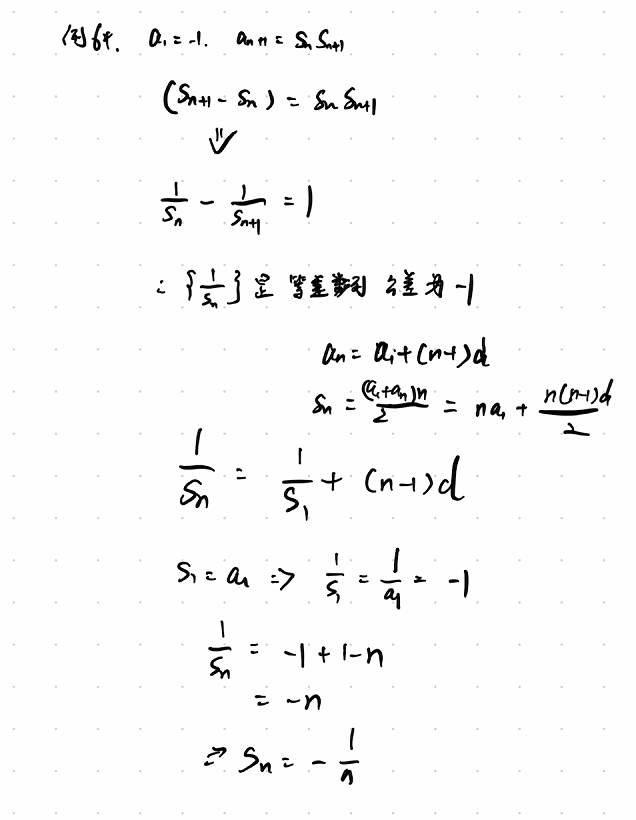 例64. a₁ = -1. aₙ₊₁ = Sₙ Sₙ₊₁
(Sₙ₊₁ - Sₙ) = Sₙ Sₙ₊₁
⇓
1/Sₙ - 1/Sₙ₊₁ = 1
∴ {1/Sₙ} 是 等差数列 公差为 -1
aₙ = a₁ + (n-1)d
Sₙ = (a₁+aₙ)n/2 = na₁ + n(n-1)d/2
1/Sₙ = 1/S₁ + (n-1)d
S₁ = a₁ => 1/S₁ = 1/a₁ = -1
1/Sₙ = -1 + 1-n
= -n
=> Sₙ = - 1/n